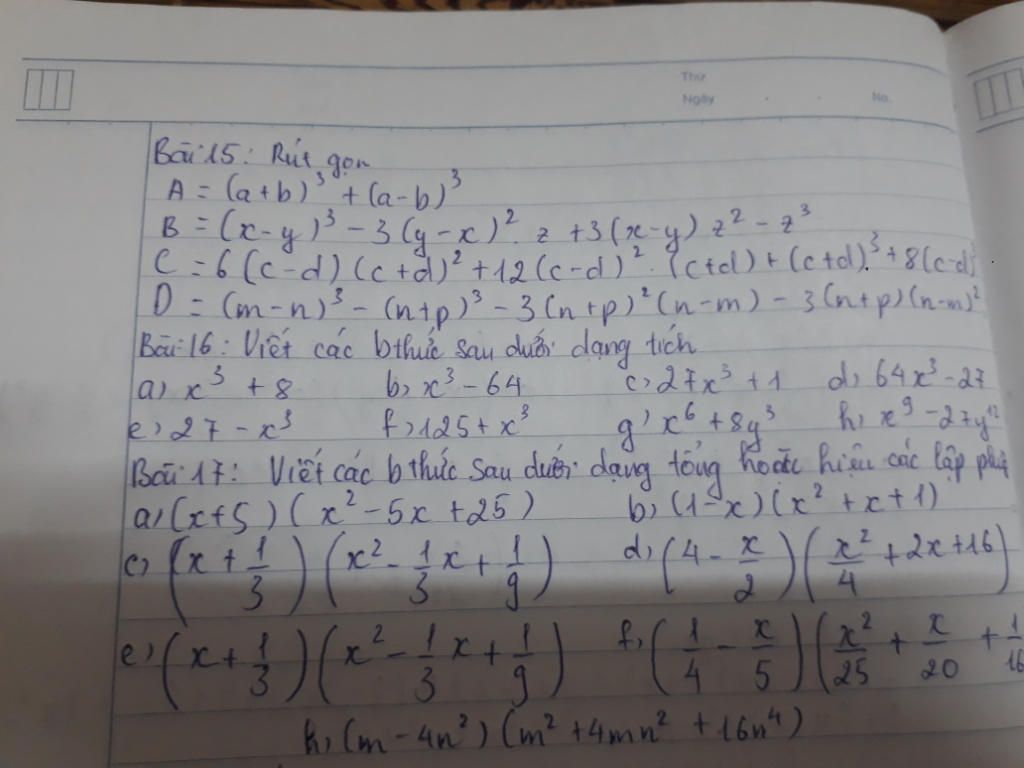 Thứ
Ngày . . No.
Bài 15: Rút gọn
A = (a+b)³ + (a-b)³
B = (x-y)³ - 3(y-x)². z + 3(x-y) z² - z³
C = 6(c-d)(c+d)² + 12(c-d)². (c+d) + (c+d)³ + 8(c-d)
D = (m-n)³ - (n+p)³ - 3(n+p)²(n-m) - 3(n+p)(n-m)²
Bài 16: Viết các bthức sau dưới dạng tích
a) x³ + 8 b) x³ - 64 c) 27x³ + 1 d) 64x³ - 27
e) 27 - x³ f) 125 + x³ g) x⁶ + 8y³ h) x⁹ - 27y¹²
Bài 17: Viết các bthức sau dưới dạng tổng hoặc hiệu các lập phư
a) (x+5)(x² - 5x + 25) b) (1-x)(x² + x + 1)
c) (x + 1/3)(x² - 1/3x + 1/9) d) (4 - x/2)(x²/4 + 2x + 16)
e) (x + 1/3)(x² - 1/3x + 1/9) f) (1/4 - x/5)(x²/25 + x/20 + 1/16
h) (m - 4n²)(m² + 4mn² + 16n⁴)